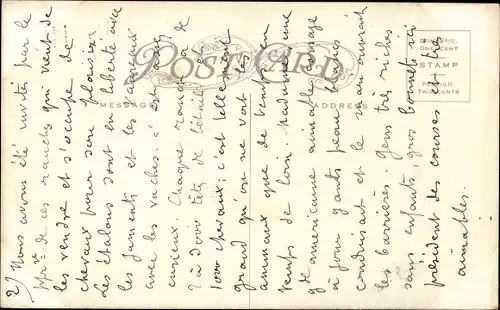 POST CARD
MESSAGE
ADDRESS
DOMESTIC,
ONE CENT
STAMP
FOREIGN,
TWO CENTS
2) Nous avons été invités par le
ppre de ces ranchs qui vient de
les vendre et s'occupe de
chevaux pour son plaisir
Les étalons sont en liberté avec
les juments et les
avec les vaches. c'est assez
curieux. Chaque ranch a de
2 à 3000 têtes de bétail et
1000 chevaux; c'est tellement
grand qu'on ne voit les
animaux que de temps en
temps de loin. Madame une
g de americaine aimable corsage
à jour gants peau blancs
conduisait et le mari ouvrait
les barrières. Gens très riches
sans enfants, gros bonnets ici
président des courses et très
aimables.